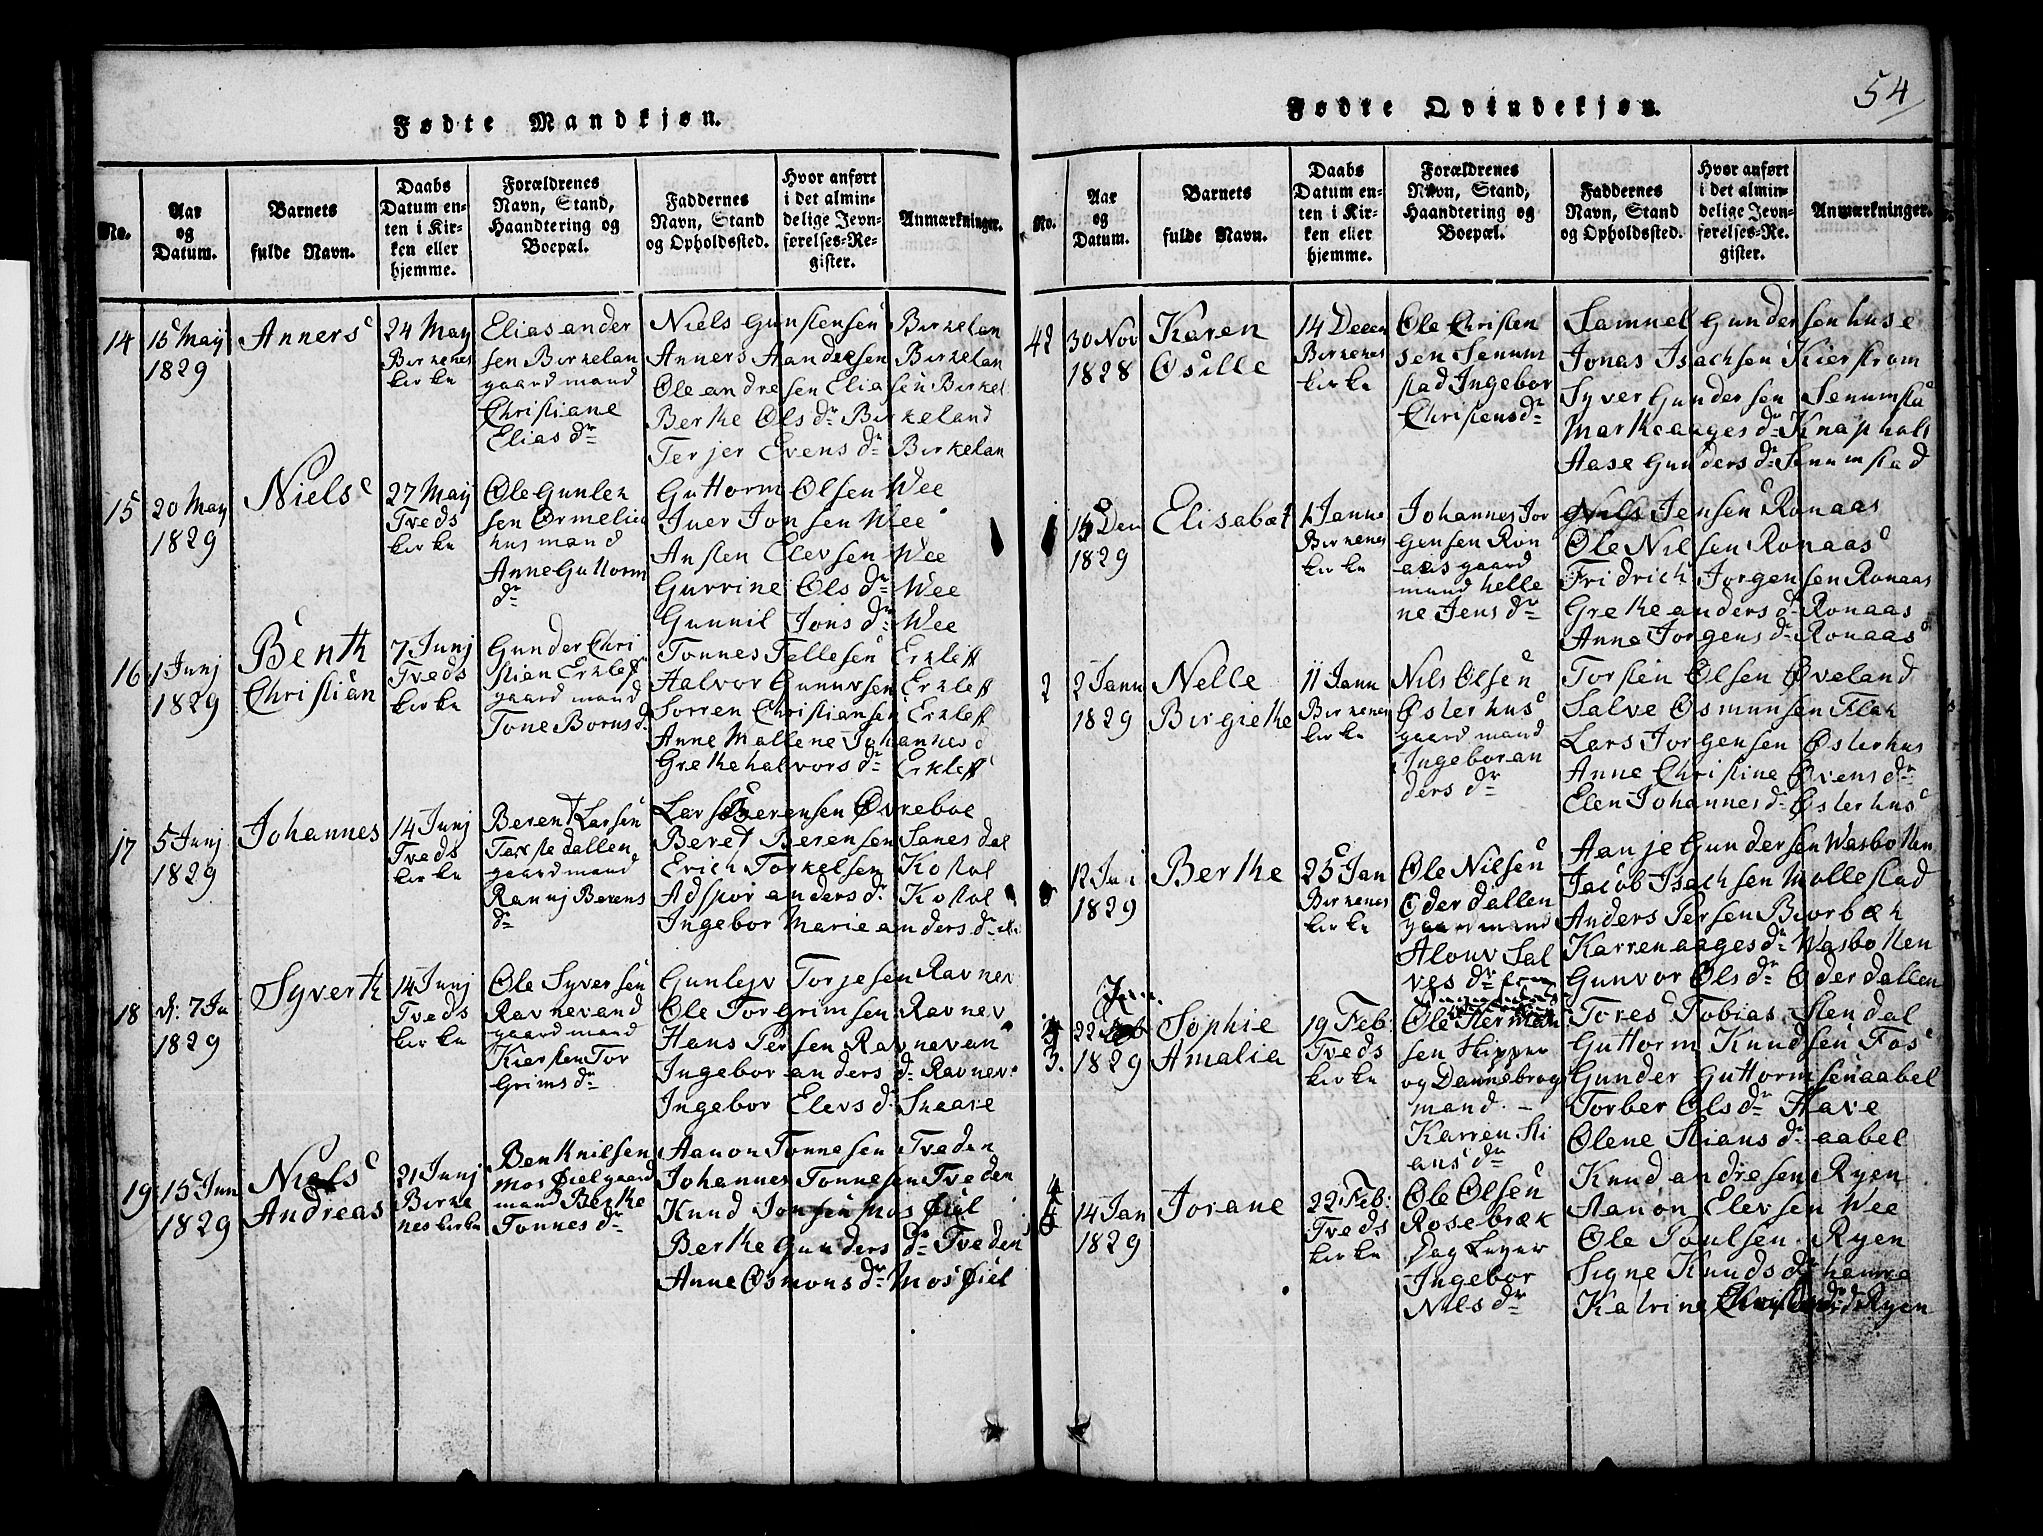 54
Fødte Mandkjøn.
No.
Aar og Datum.
Barnets fulde Navn.
Daabs Datum enten i Kirken eller hjemme.
Forældrenes Navn, Stand, Haandtering og Boepæl.
Faddernes Navn, Stand og Opholdssted.
Hvor anført i det almindelige Jevnførelses-Register.
Anmærkninger.
14
15 May
1829
Anners
24 May
Birkenes
kirke
Elias ander
sen Birkelan
gaardmand
Christiane
Elias dr
Niels Gunstensen Birkelan
Anners Aandersen Birkelan
Ole andresen Eliasen Birkel
Berthe Ols dr Birkeland
Terjer Evens dr Birkelan
15
20 May
1829
Niels
27 May
Tveds
kirke
Ole Gunlek
sen Ormelid
husmand
Anne Guttorm
dr
Guttorm Olsen Wee
Iver Jonsen Wee
Ansten Elevsen Wee
Gurrine Ols dr Wee
Gunnil Jons dr Wee
16
1 Junj
1829
Benth
Christian
7 Junj
Tveds
kirke
Gunder Chri
stian Erkleff
gaardmand
Tone Borns d
Tonnes Tellesen Erkleff
Halvor Gunuvsen Erkleff
Sorren Christiansen Erkleff
Anne Mallene Johannes d
Grethe halvors dr Erkleff
17
5 Junj
1829
Johannes
14 Junj
Tveds
kirke
Berent Larsen
Terstedallen
gaardmand
Rannj Berens
dr
Lars Berensen Øvreboe
Beret Berensen Sanes dal
Erich Torkelsen Kostol
Adspor anders dr Kostol
Ingebor Marie anders dr
18
d. 7 Ju
1829
Syverth
14 Junj
Tveds
kirke
Ole Syversen
Ravnevand
gaardmand
Kiersten Tor
Grims dr
Gunlejv Torjesen Ravnev
Ole Torgrimsen Ravnev
Hans Persen Ravnevan
Ingebor anders dr Ravnev
Ingebor Elevs d. Snaare
19
15 Jun
1829
Niels
Andreas
21 Junj
Birke
nes kirke
Benth nilsen
Mosfiel gaard
mand Berthe
Tonnes dr
Aanon Tonnesen Tveden
Johannes Tonnesen Tveden
Knud Jonsen Mosfiel
Berthe Gunders dr Tveden
Anne Osmons dr Mosfiel
Fødte Qvindekjøn.
No.
Aar og Datum.
Barnets fulde Navn.
Daabs Datum enten i Kirken eller hjemme.
Forældrenes Navn, Stand, Haandtering og Boepæl.
Faddernes Navn, Stand og Opholdssted.
Hvor anført i det almindelige Jevnførelses-Register.
Anmærkninger.
42
30 Nov
1828
Karen
Osille
14 Decem
Birkenes
kirke
Ole Christen
sen Senum
stad Ingebor
Christensdr
Samuel Gundersen huse
Jonas Isachsen Kierstrøm
Syver Gundersen Senumsta
Marthe aages dr Knapholt
Aase Gunders dr Senumstad
1
15 Den
1829
Elisabet
1 Janne
Birkenes
kirke
Johannes Jor
gensen Ron
aas gaard
mand helle
ne Jens dr
Nils Jensen Ronaas
Ole Nilsen Ronaas
Fridrich Jorgensen Ronaas
Grethe anders dr Ronaas
Anne Jorgens dr Ronaas
2
2 Jann
1829
Nelle
Birgiethe
11 Jann
Birkenes
kirke
Nils Olsen
Østerhus
gaardmand
Ingebor an
ders dr
Torsten Olsen Øveland
Salve Osmunsen Flak
Lars Jorgensen Østerhus
Anne Christine Ovens dr
Elen Johannes dr Østerhus
12 Jan
1829
Berthe
25 Jan
Birkenes
kirke
Ole Nilsen
Oderdallen
gaardmand
Alouv Sal
ves dr
Aanje Gundersen Wasbotten
Jacob Isachsen Mollestad
Anders Persen Biorbæk
Karren aages dr Wasbotten
Gunvor Ols dr Oderdallen
3.
Jan.
22
1829
Sophie
Amalia
19 Feb:
Tveds
kirke
Ole Herman
sen Skipper
og Dannebrog
mand.
Karren Sti
ans dr
Tores Tobias Stendal
Guttorm Knudsen Fos
Gunder Guttormsen aabel
Torber Ols dr Have
Olene Stians dr aabel
4
14 Jan
1829
Jorane
22 Feb:
Tveds
kirke
Ole Olsen
Rosebræk
Dag Lejer
Ingebor
Nils dr
Knud andresen Ryen
Aanon Elevsen Wee
Ole Poulsen Ryen
Signe Knuds dr
Katrine Ryen